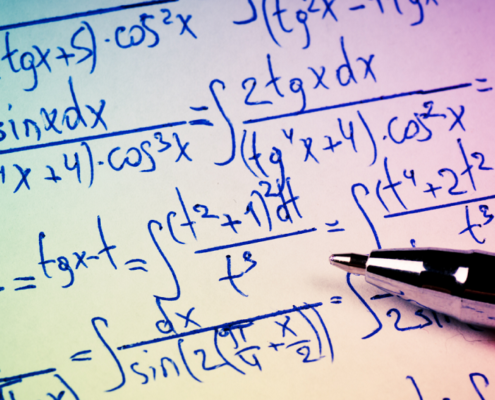 tgx+5)·cos²x ∫(tg²x-1)
sinxdx / x+4)·cos³x = ∫ 2tgxdx / (tg⁴x+4)·cos²x =
= tgx-t = ∫ (t²+1)²dt / t³ = ∫ (t⁴+2t² / t³
= ∫ dx / sin(2(π/4+x/2)) = ∫ / 2sin